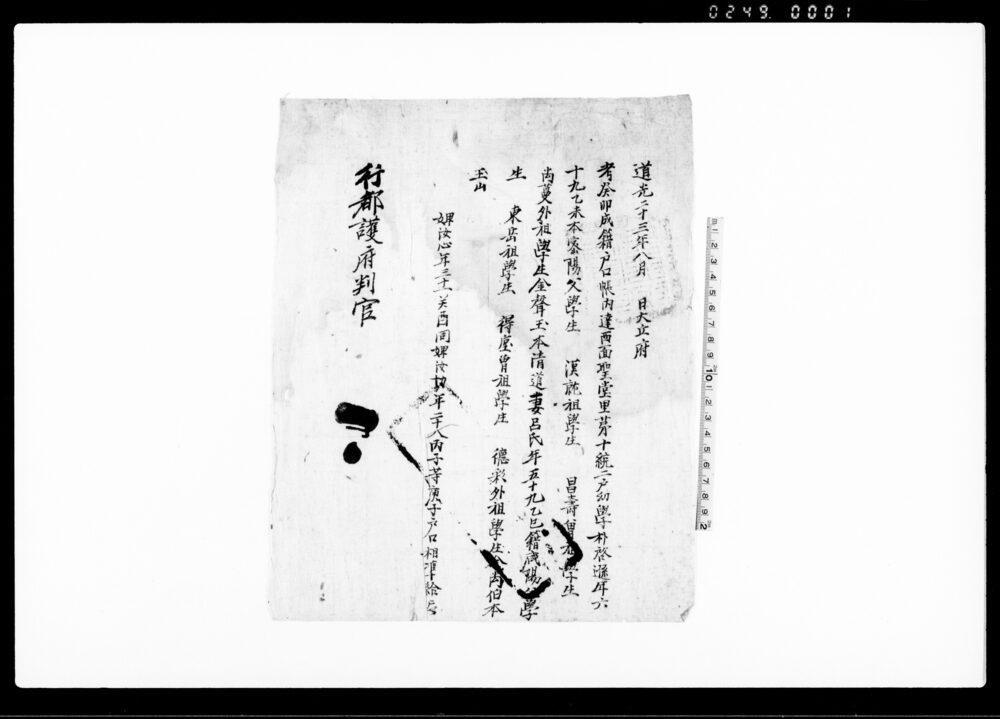 0249. 0001
道光二十三年八月 日大丘府
考癸卯成籍戶口帳內達西面聖堂里第十統二戶幼學朴啓 年六
十九乙未本密陽父學生 漢 祖學生 昌壽曾祖學生
尚蔓外祖學生金聲玉本清道妻呂氏年五十九乙巳籍咸陽父學
生 東岳祖學生 得 曾祖學生 德彩外祖學生 尚伯本
玉山
婢汝心年三十一癸酉同婢汝切年二十八丙子等庚子戶口相準給
行都護府判官